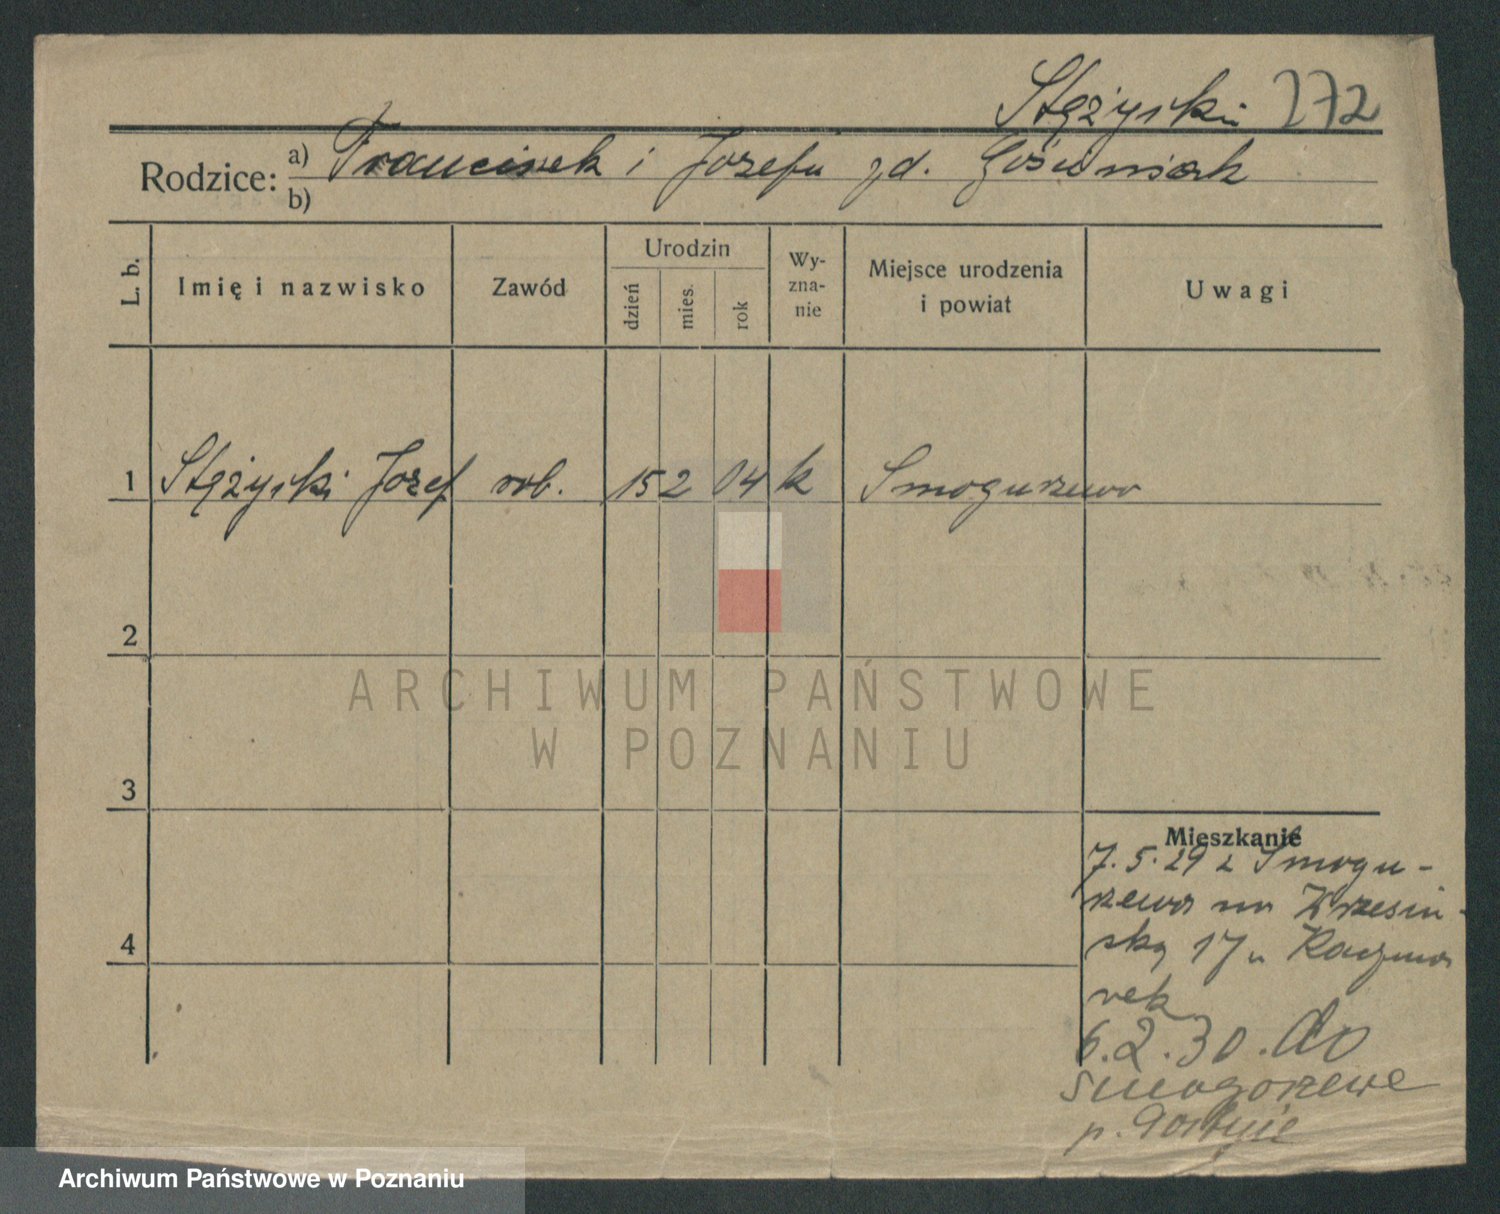 Stężyski 272
Rodzice: a) Franciszek i Józefa zd. Gościniak
b)
L. b. Imię i nazwisko Zawód Urodzin dzień mies. rok Wy-zna-nie Miejsce urodzenia i powiat Uwagi
1 Stężyski Józef rob. 15 2 04 k Smogorzewo
2
3
4
Mieszkanie
7.5.29 z Smogo-
rzewa na Krzesiń-
ską 17 u Kaczma
rek
6.2.30. do
Smogorzewo
p. Gostyń
ARCHIWUM PAŃSTWOWE
W POZNANIU
Archiwum Państwowe w Poznaniu